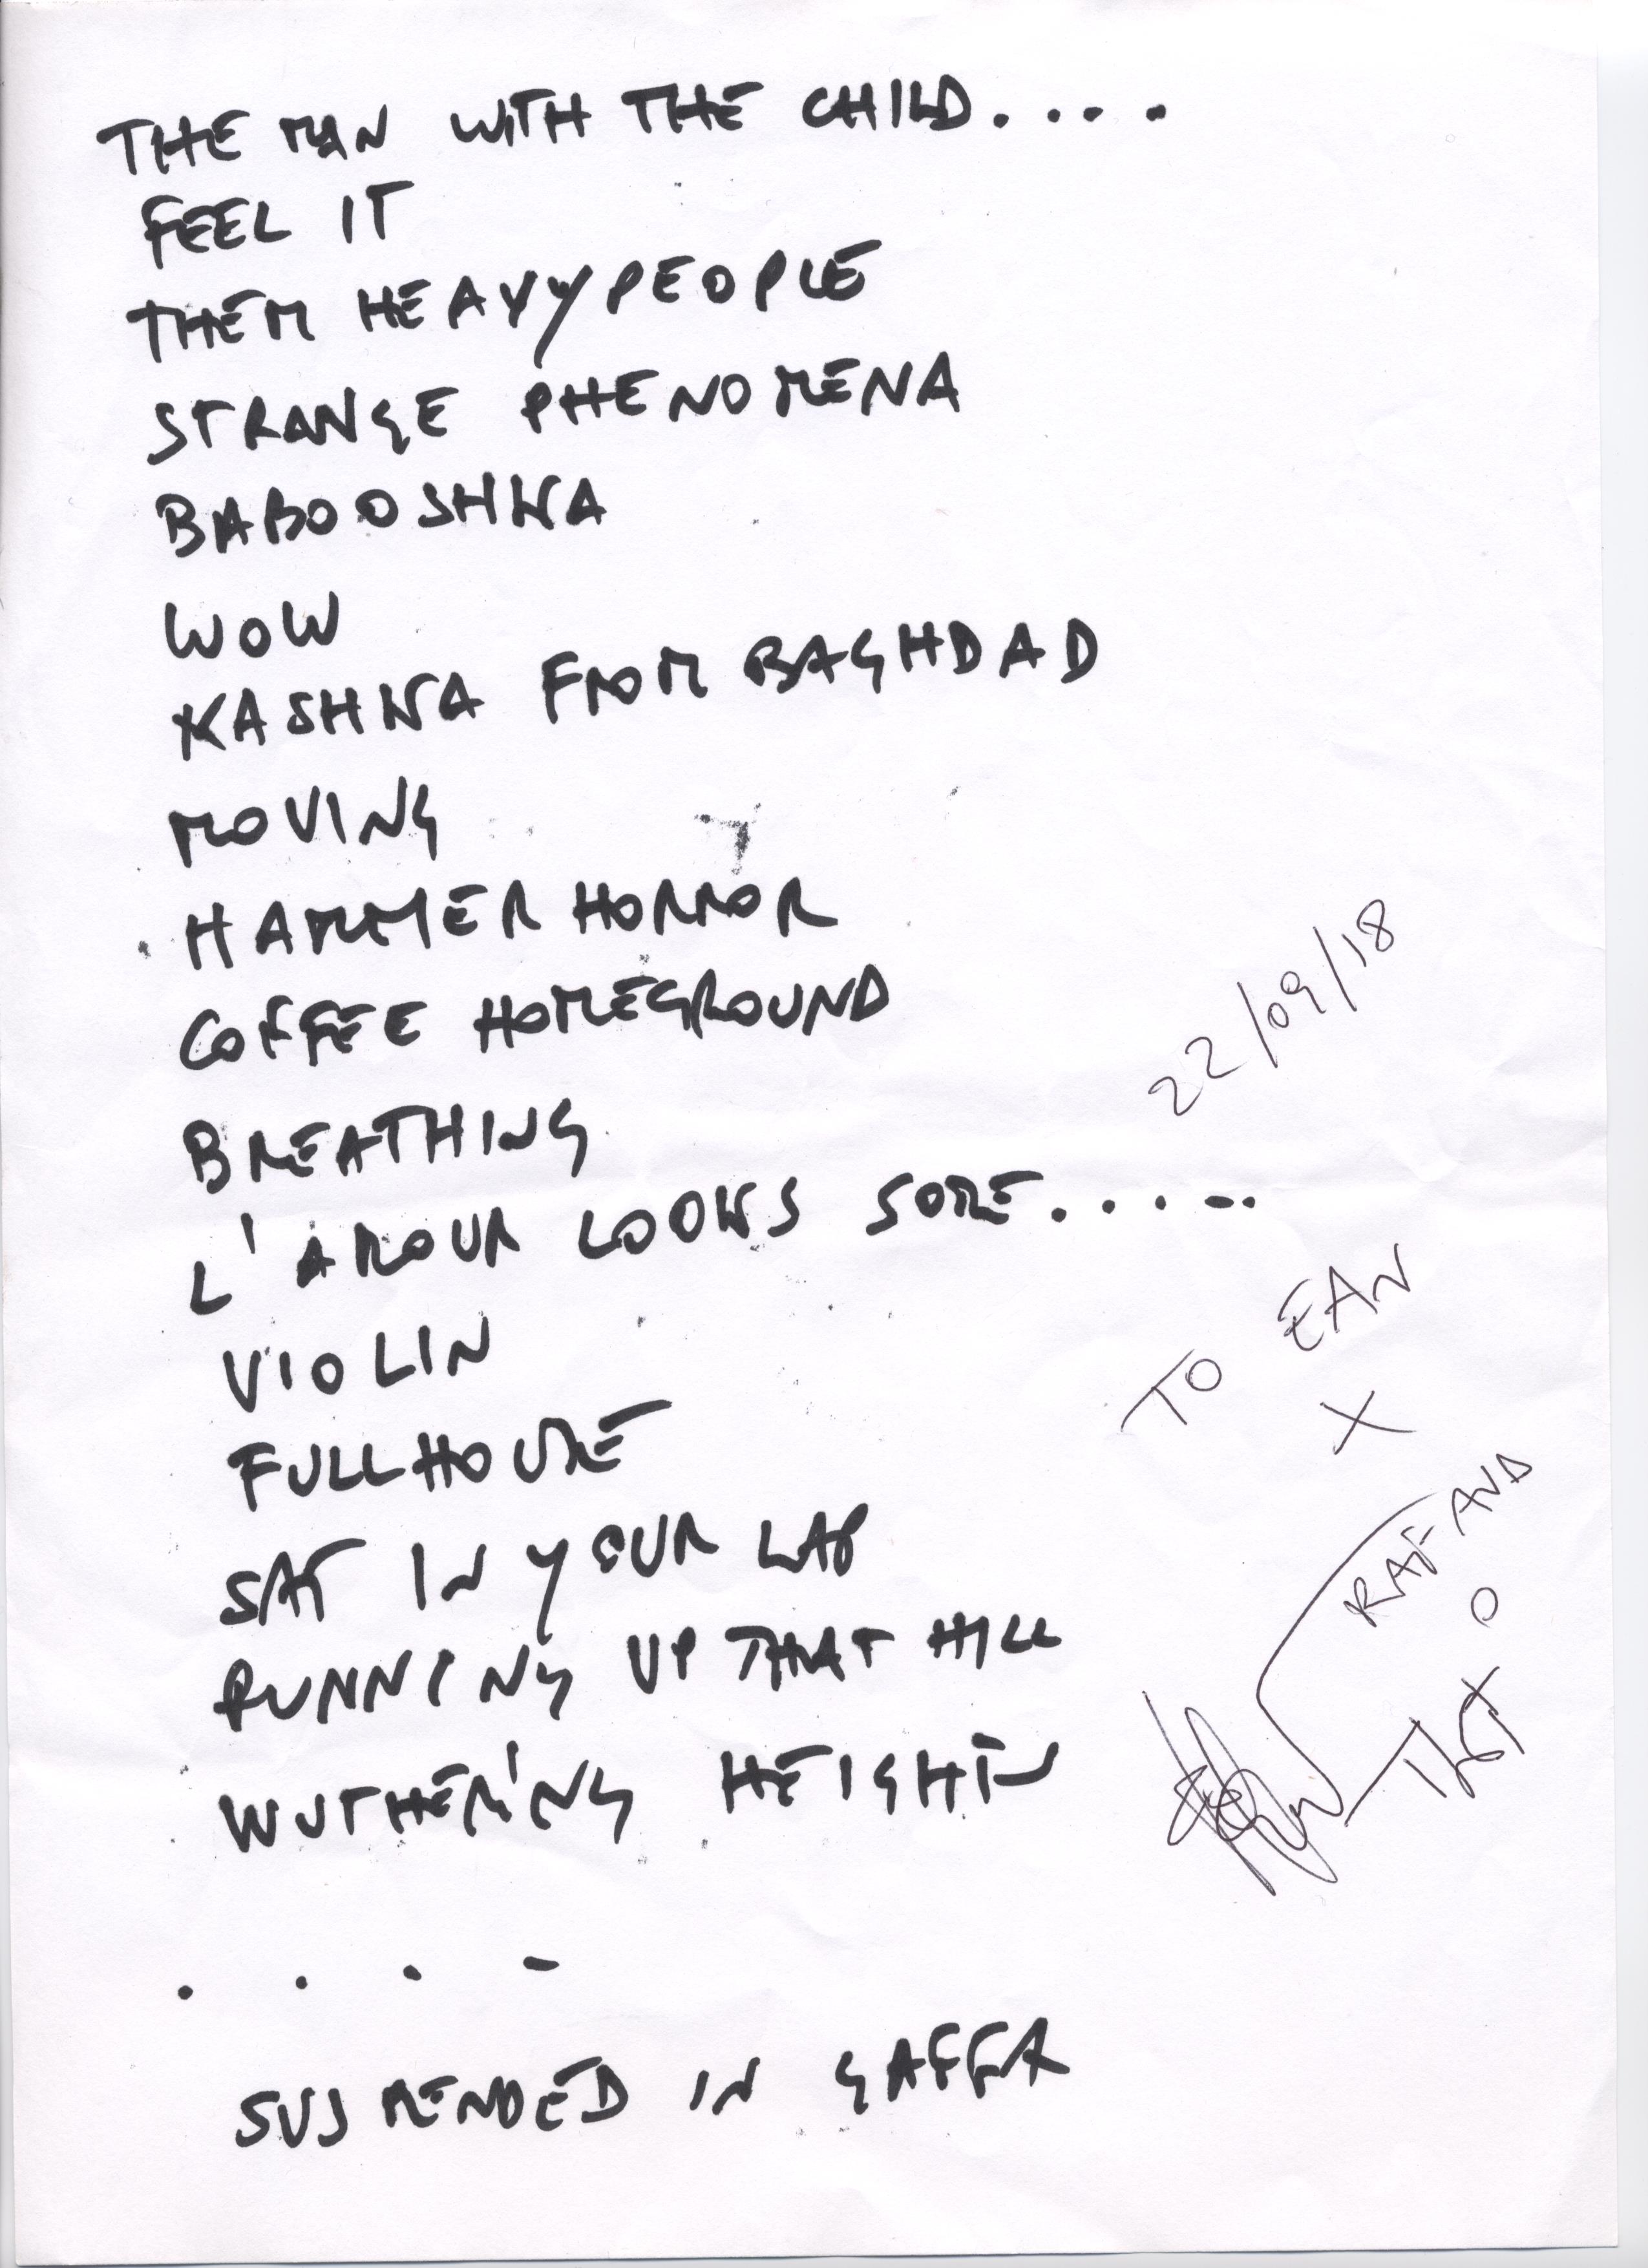 THE MAN WITH THE CHILD....
FEEL IT
THEM HEAVY PEOPLE
STRANGE PHENOMENA
BABOOSHKA
WOW
KASHKA FROM BAGHDAD
MOVING
HAMMER HORROR
COFFEE HOMEGROUND
BREATHING
L'AMOUR LOOKS SOME.....
VIOLIN
FULLHOUSE
SAT IN YOUR LAP
RUNNING UP THAT HILL
WUTHERING HEIGHTS
. . . -
SUSPENDED IN GAFFA
22/09/18
TO EAN
X
RAF AND
O